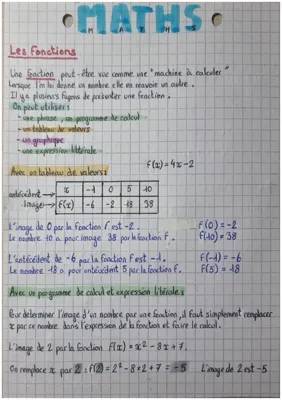 MATHS
M A T H S
Les Fonctions
Une fonction peut-être vue comme une "machine à calculer"
Lorsque l'on lui donne un nombre elle en renvoie un autre.
Il y a plusieurs façons de présenter une fonction.
On peut utiliser :
- une phrase, un programme de calcul
- un tableau de valeurs
- un graphique
- une expression littérale
f(x) = 4x - 2
Avec un tableau de valeurs :
antécédent x -1 0 5 10
Image f(x) -6 -2 18 38
L'image de 0 par la fonction f est -2. f(0) = -2
Le nombre 10 a pour image 38 par la fonction f. f(10) = 38
L'antécédent de -6 par la fonction f est -1. f(-1) = -6
Le nombre 18 a pour antécédent 5 par la fonction f. f(5) = 18
Avec un programme de calcul et expression littérale :
Pour déterminer l'image d'un nombre par une fonction, il faut simplement remplacer
x par ce nombre dans l'expression de la fonction et faire le calcul.
L'image de 2 par la fonction f(x) = x² - 8x + 7.
On remplace x par 2 : f(2) = 2² - 8 × 2 + 7 = -5 L'image de 2 est -5